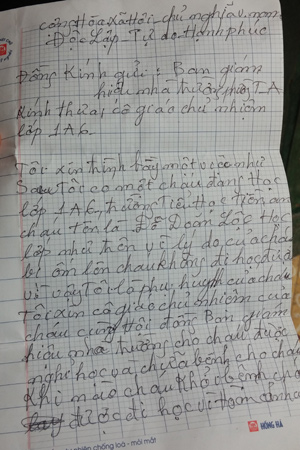 cộng Hòa xã Hội chủ nghĩa v. nam
Độc Lập _ Tự do. Hạnh phúc
Đồng Kính gửi: Ban giám
hiệu nhà trường
Kính thưa: cô giáo chủ nhiệm
lớp 1A6.
Tôi xin trình bày một việc như
Sau Tôi có một cháu đang Học
lớp 1A6, trường Tiểu Học Tiên
cháu tên là Lê Doãn Lộc Học
lớp như trên vì lý do của cháu
bị ốm lên cháu không đi học được
vì vậy Tôi là phụ huynh của cháu
Tôi xin cô giáo chủ nhiệm của
cháu cùng Hội đồng Ban giám
hiệu nhà trường cho cháu được
nghỉ học và chữa bệnh cho cháu
khi nào cháu Khỏi bệnh
được đi học vì
HỒNG HÀ
HỒNG HÀ